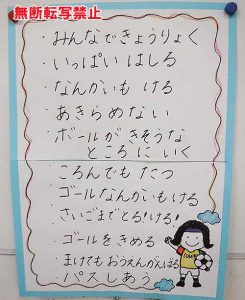 無断転写禁止
・みんなできょうりょく
・いっぱい はしる
・なんかいも ける
・あきらめない
・ボールが きそうな
ところ に いく
・ころんでも たつ
・ゴールなんかいも ける
・さいごまでとる!ける!
・ゴールを きめる
・まけても おうえんがんばる
・パスしあう